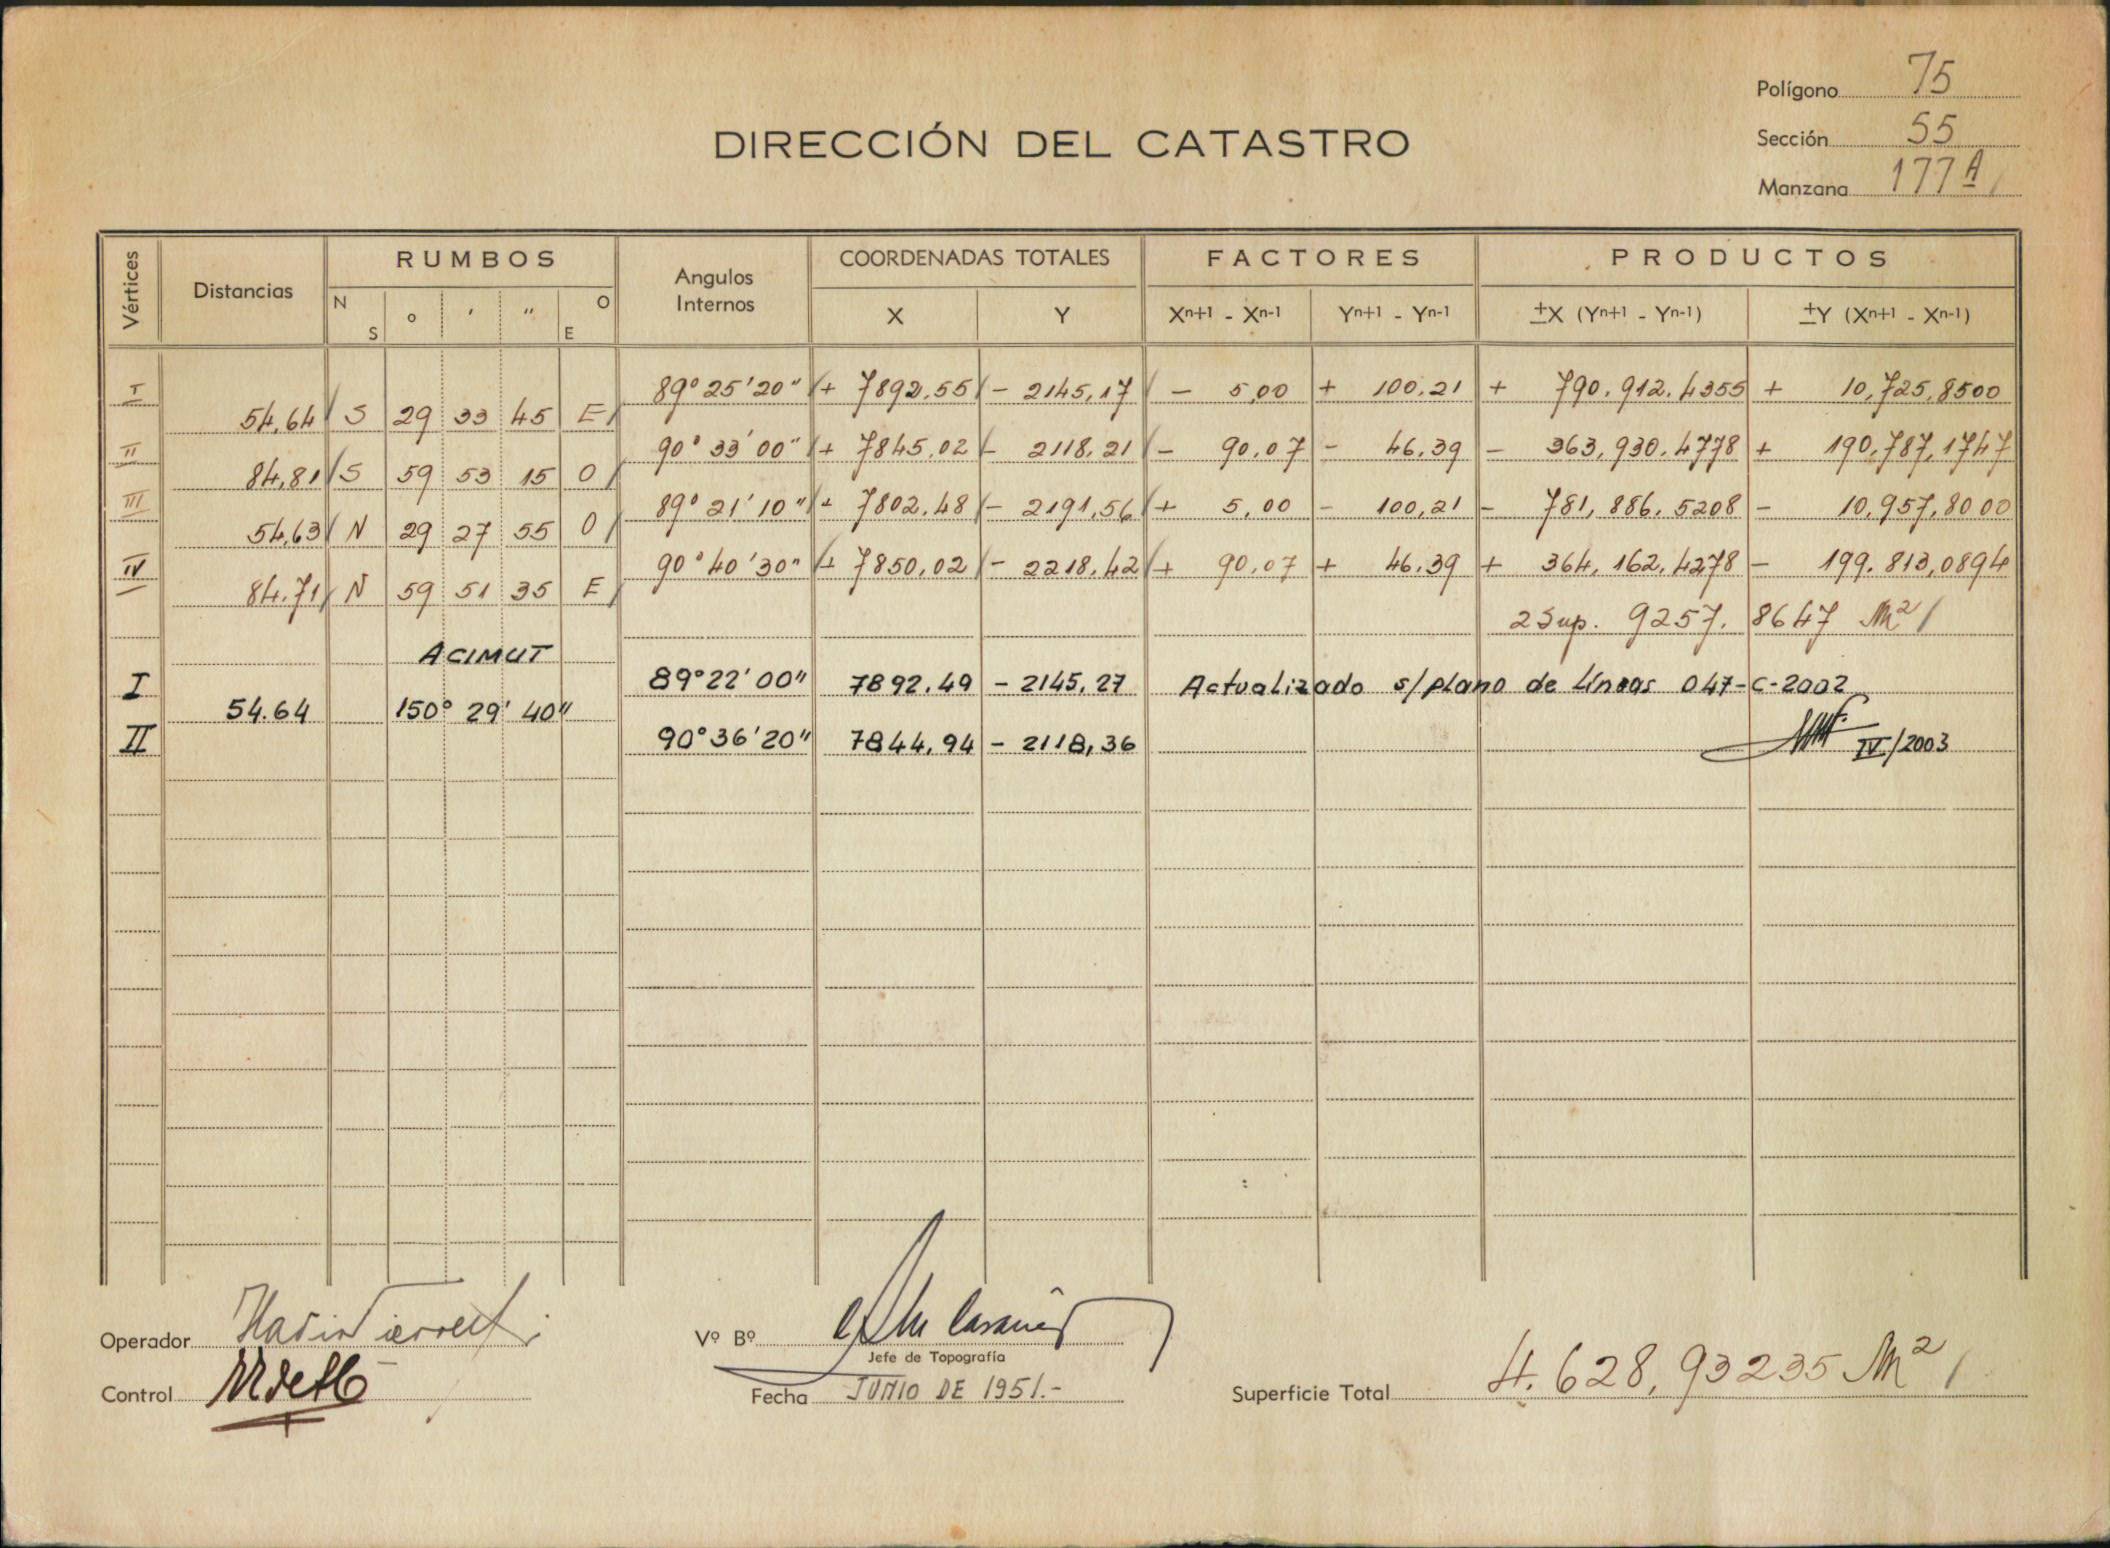 Polígono 75
DIRECCIÓN DEL CATASTRO
Sección 55
Manzana 177 A
Vértices Distancias RUMBOS Angulos Internos COORDENADAS TOTALES FACTORES PRODUCTOS
N S ° ' " O E X Y Xn+1 - Xn-1 Yn+1 - Yn-1 ±X (Yn+1 - Yn-1) ±Y (Xn+1 - Xn-1)
I 89° 25' 20" + 7892,55 - 2145,17 - 5,00 + 100,21 + 790.912.4355 + 10,725,8500
54,64 S 29 33 45 E
II 90° 33' 00" + 7845,02 - 2118,21 - 90,07 - 46,39 - 363,930.4778 + 190,787,1747
84,81 S 59 53 15 O
III 89° 21' 10" + 7802,48 - 2191,56 + 5,00 - 100,21 - 781,886.5208 - 10.957,8000
54,63 N 29 27 55 O
IV 90° 40' 30" + 7850,02 - 2218,42 + 90,07 + 46,39 + 364,162.4278 - 199.813,0894
84.71 N 59 51 35 E
2 Sup. 9257. 8647 M²
ACIMUT
I 89° 22' 00" 7892.49 - 2145,27 Actualizado s/plano de líneas 047-C-2002
54.64 150° 29' 40"
II 90° 36' 20" 7844,94 - 2118,36 IV/2003
Operador
Vº Bº
Jefe de Topografía
Control
Fecha JUNIO DE 1951.-
Superficie Total 4.628,93235 M²